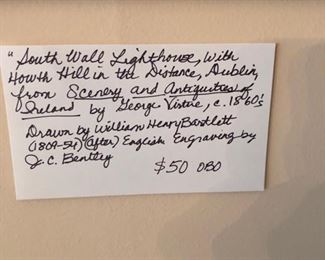 "South Wall Lighthouse, With
Howth Hill in the Distance, Dublin,
from Scenery and Antiquities of
Ireland by George Virtue, c. 1860's
Drawn by William Henry Bartlett
(1809-54) (After) English Engraving by
J. C. Bentley
$50 OBO